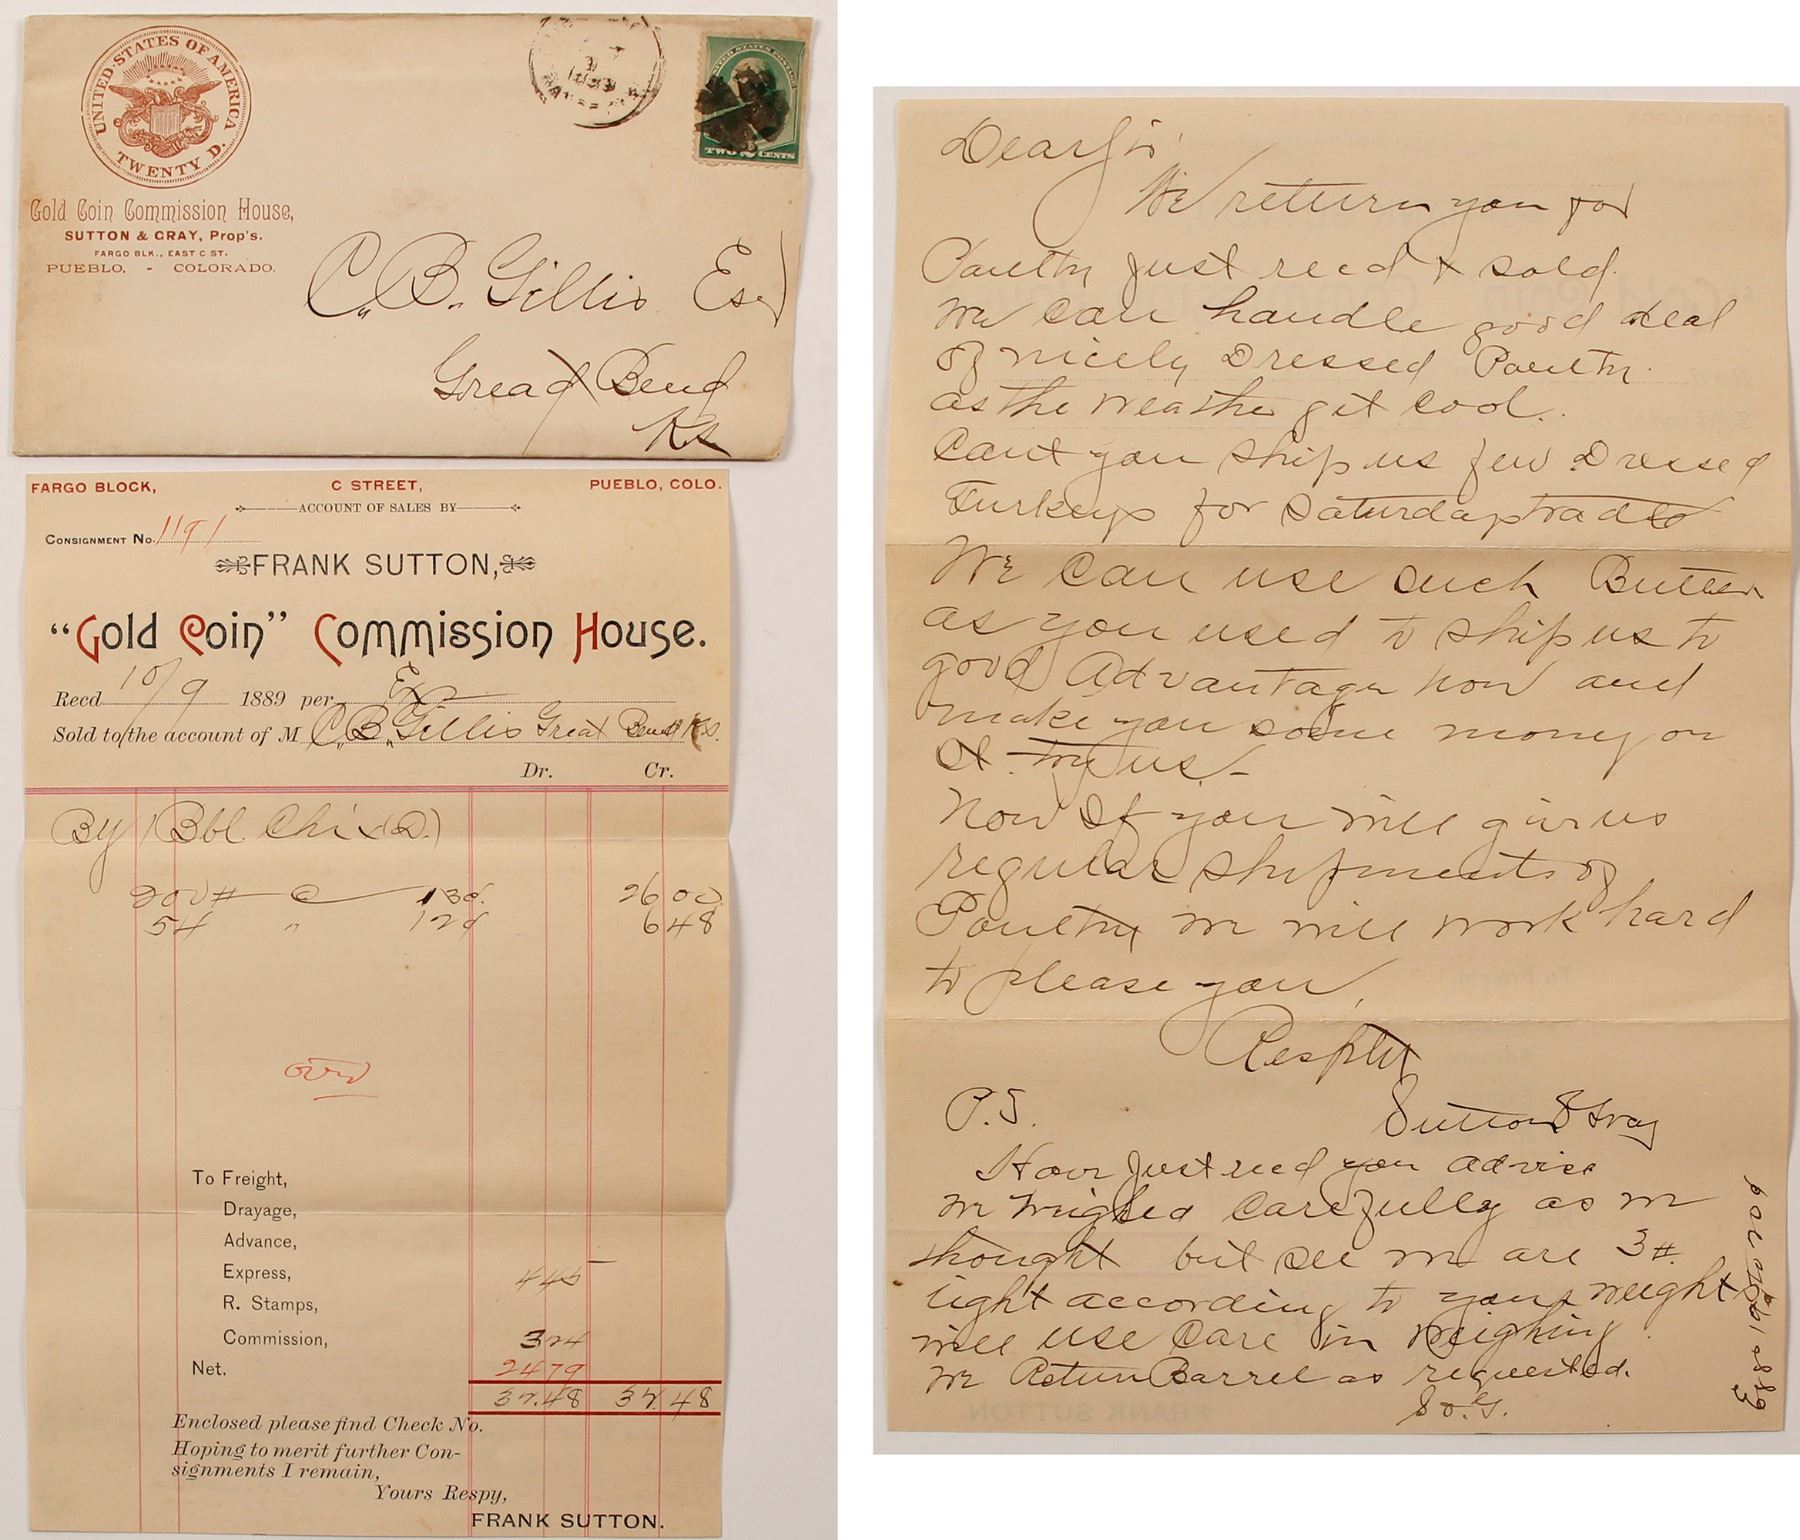 UNITED STATES OF AMERICA
TWENTY D.
Gold Coin Commission House,
SUTTON & GRAY, Prop's.
FARGO BLK., EAST C ST.
PUEBLO, - COLORADO.
TWO 2 CENTS
C. B. Gillis Esq
Great Bend
Ks
FARGO BLOCK, C STREET, PUEBLO, COLO.
ACCOUNT OF SALES BY
CONSIGNMENT No. 1191
FRANK SUTTON,
"Gold Coin" Commission House.
Recd 10/9 1889 per Ex
Sold to the account of M C. B. Gillis Great Bend Ks.
Dr. Cr.
By 1 Bbl. Chix (D.)
200 # @ 13¢ 26 00
54 " 12¢ 6 48
over
To Freight,
Drayage,
Advance,
Express, 445
R. Stamps,
Commission, 324
Net. 2479
32.48 32.48
Enclosed please find Check No.
Hoping to merit further Con-
signments I remain,
Yours Respy,
FRANK SUTTON.
Dear Sir
We return you for
Poultry just recd & sold.
We can handle good deal
of nicely Dressed Poultry
as the weather get cool.
Cant you ship us few Dressed
Turkeys for Saturdays trade
We can use such Butter
as you used to ship us to
good Advantage now and
make you some money on
it. try us. -
Now If you will give us
regular shipments of
Poultry we will work hard
to please you,
Respty
Sutton & Gray
P.S.
Have just recd you advise
we weighed carefully as we
thought but see we are 3 #
light according to your weight
will use care in weighing.
We Return Barrel as requested.
S & G.